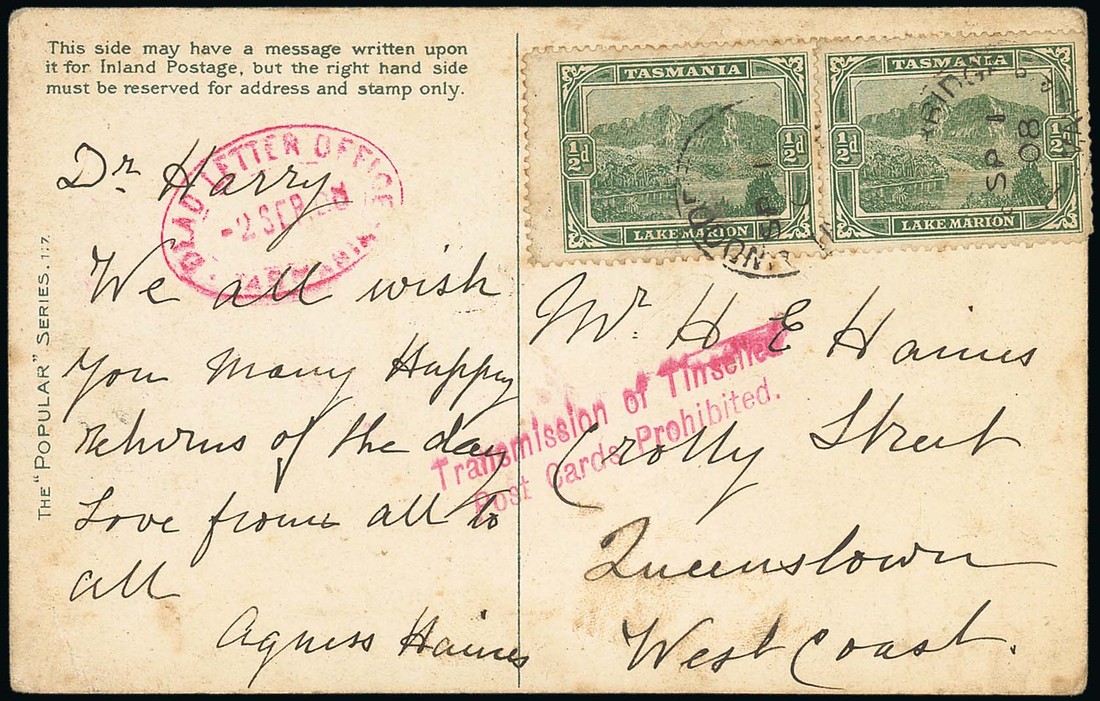 This side may have a message written upon
it for Inland Postage, but the right hand side
must be reserved for address and stamp only.
DEAD LETTER OFFICE
-2 SEP.
TASMANIA
Dr Harry
We all wish
you many Happy
returns of the day
Love from all to
all
Agness Haines
THE "POPULAR" SERIES. 1:7.
TASMANIA
½d ½d
LAKE MARION
TASMANIA
½d ½d
LAKE MARION
SP 1
SP 1
08
Mr. H E Haines
Transmission of Tinselled
Post Cards Prohibited.
Crotty Street
Queenstown
West Coast.